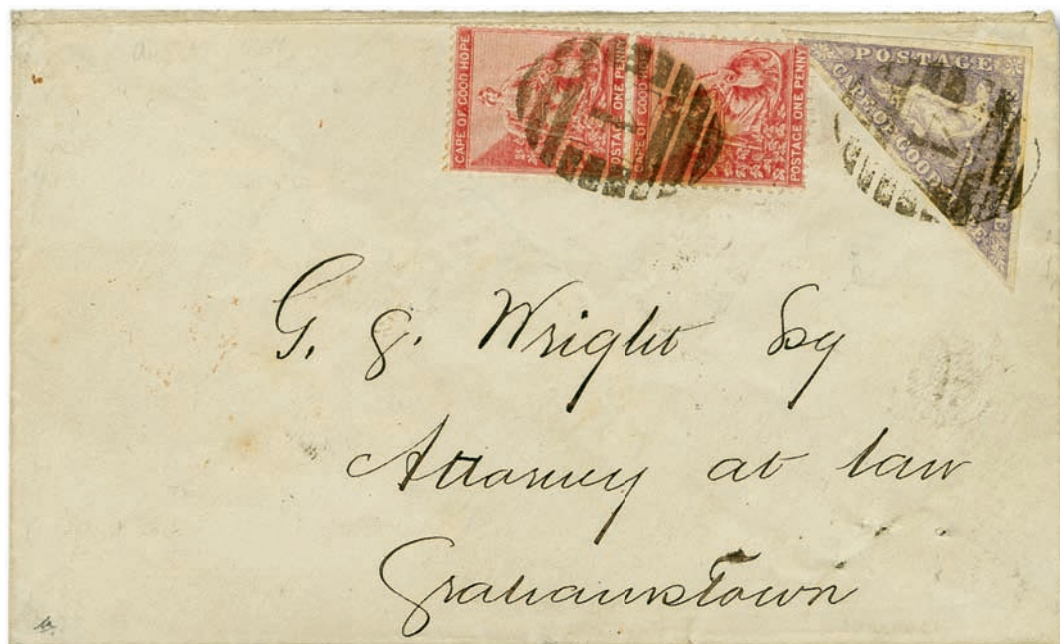 CAPE OF GOOD HOPE
POSTAGE ONE PENNY
CAPE OF GOOD HOPE
POSTAGE ONE PENNY
POSTAGE
CAPE OF GOOD HOPE
1
1
G. G. Wright Esq
Attorney at law
Grahamstown